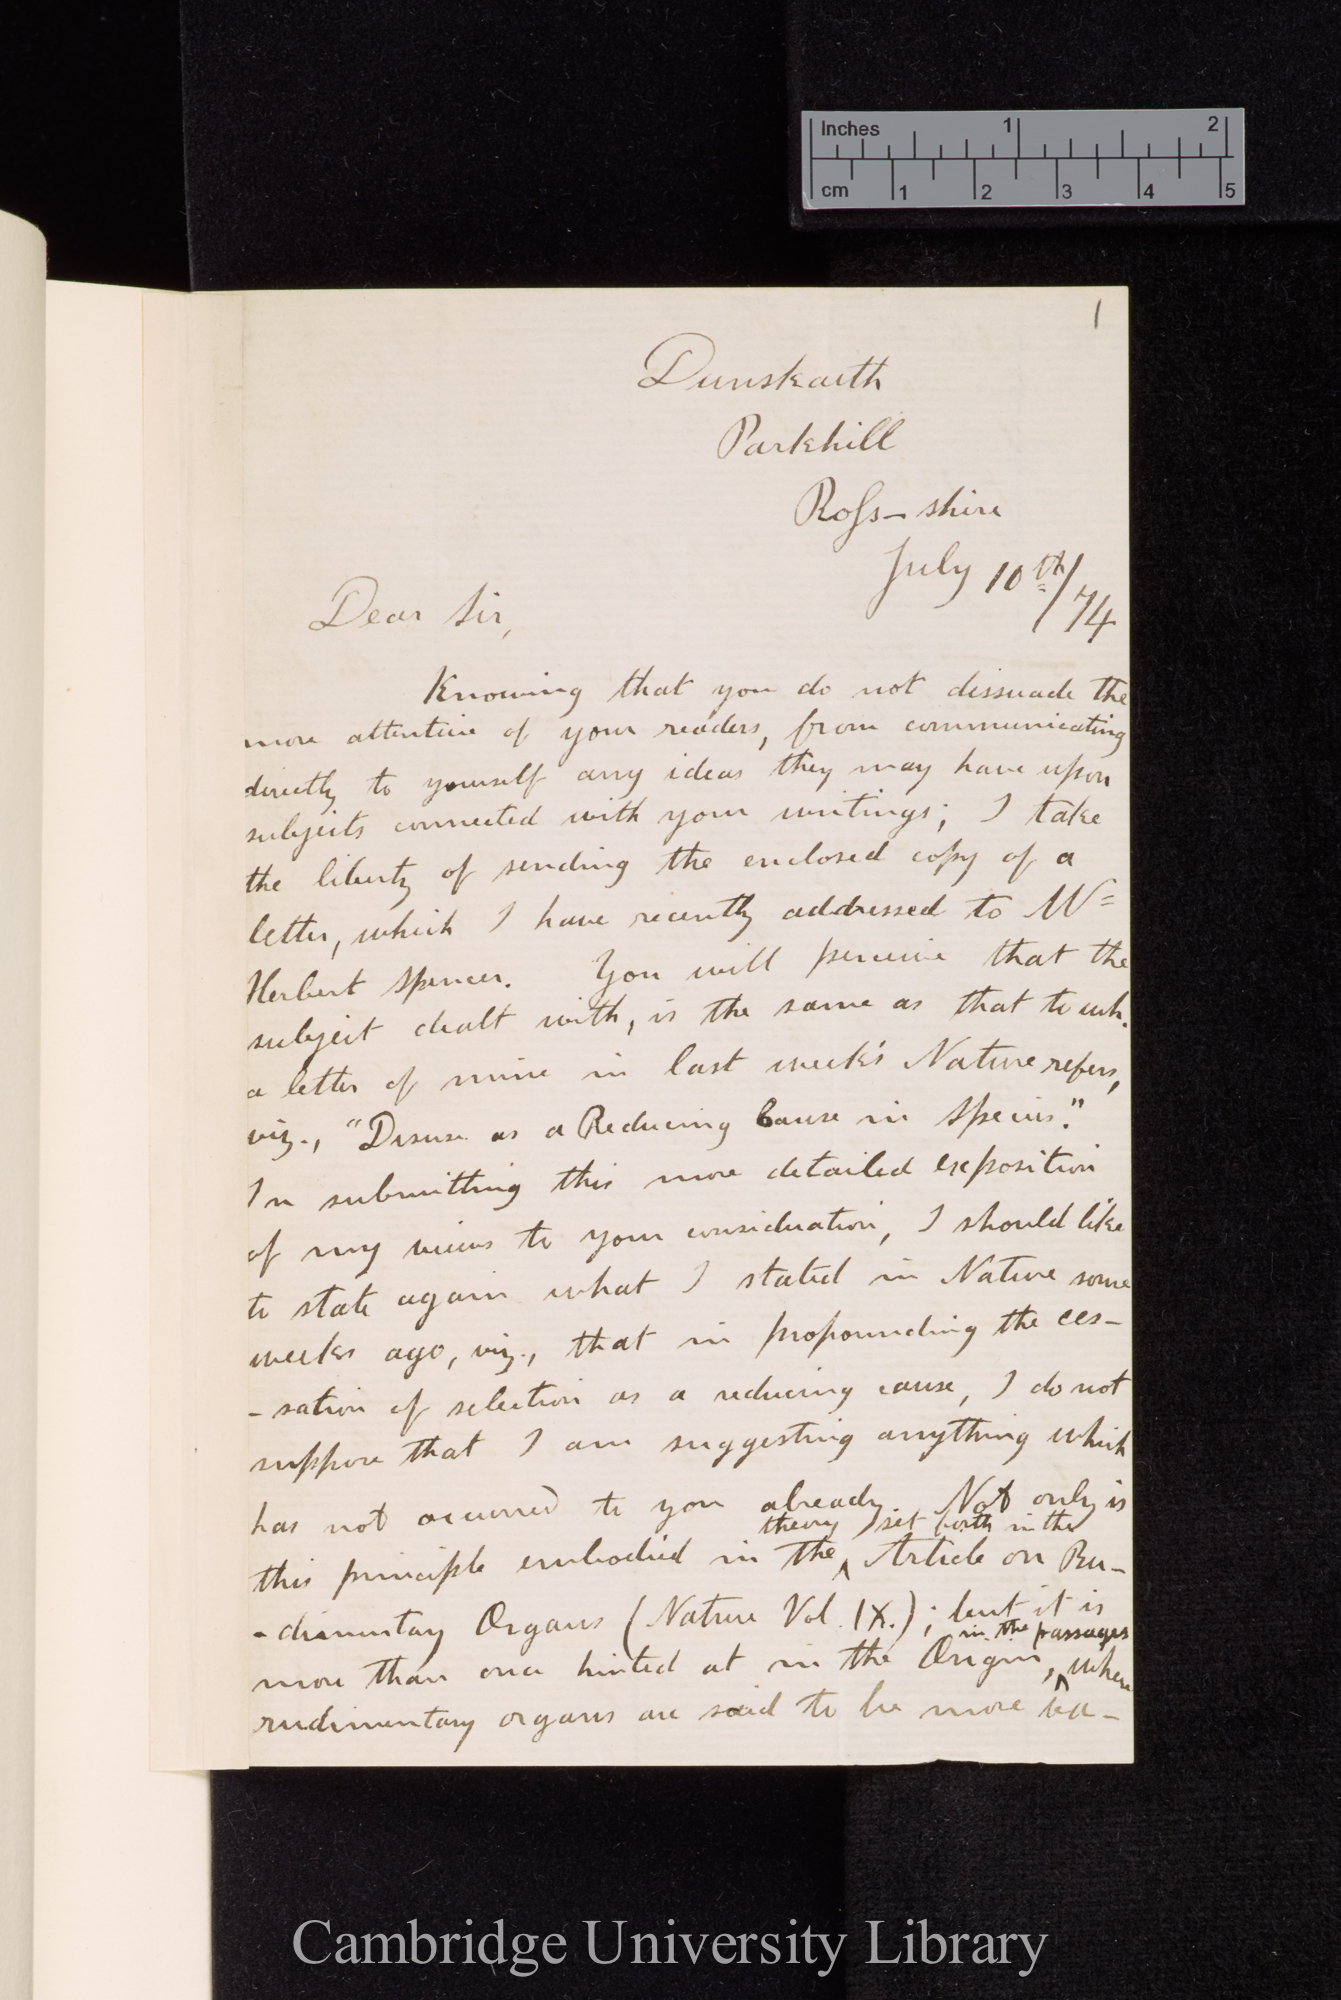 Inches 1 2
cm 1 2 3 4 5
1
Dunskaith
Parkhill
Ross-shire
July 10th/74
Dear Sir,
Knowing that you do not dissuade the
more attentive of your readers, from communicating
directly to yourself any ideas they may have upon
subjects connected with your writings; I take
the liberty of sending the enclosed copy of a
letter, which I have recently addressed to Mr
Herbert Spencer. You will perceive that the
subject dealt with, is the same as that to wh.
a letter of mine in last week's Nature refers,
viz., "Disuse as a Reducing Cause in Species."
In submitting this more detailed exposition
of my views to your consideration, I should like
to state again what I stated in Nature some
weeks ago, viz., that in propounding the ces-
-sation of selection as a reducing cause, I do not
suppose that I am suggesting anything which
has not occurred to you already. Not only is
theory set forth in the
this principle embodied in the ^ Article on Ru-
-dimentary Organs (Nature Vol. IX.); but it is
in the passages
more than once hinted at in the Origin, ^ where
rudimentary organs are said to be more va-
Cambridge University Library